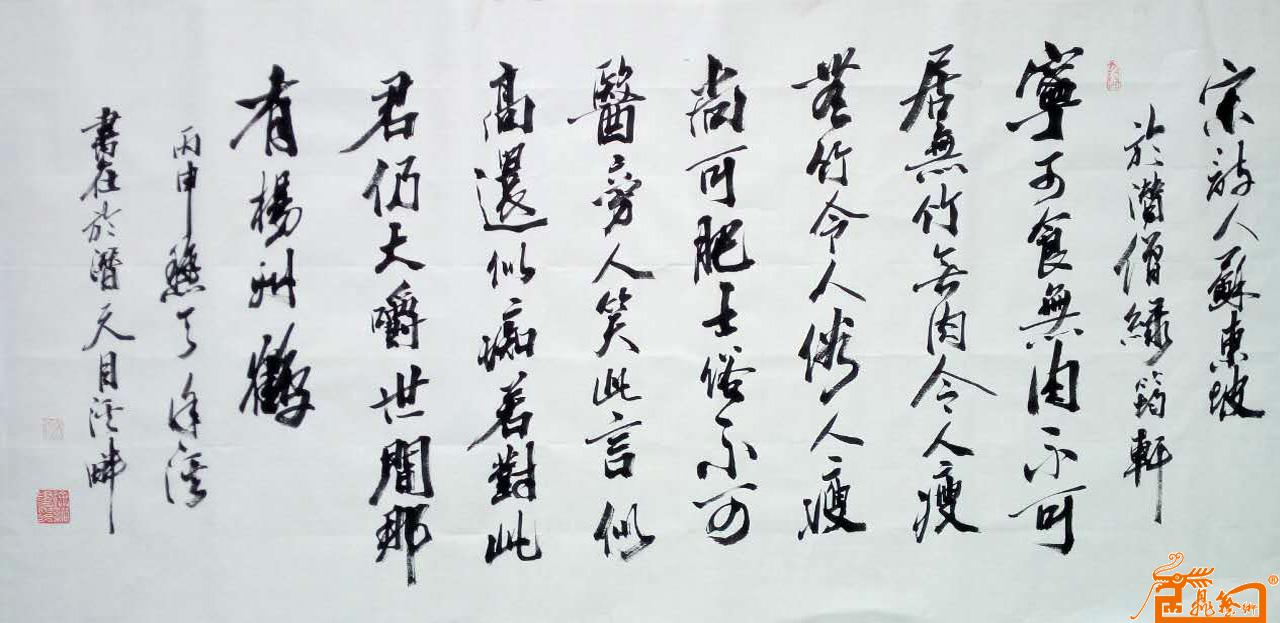 宋詩人蘇東坡
於潛僧綠筠軒
寧可食無肉不可
居無竹无肉令人瘦
無竹令人俗人瘦
尚可肥士俗不可
醫旁人笑此言似
高還似痴若對此
君仍大嚼世間那
有楊州鶴
丙申
書在於潛天目溪畔